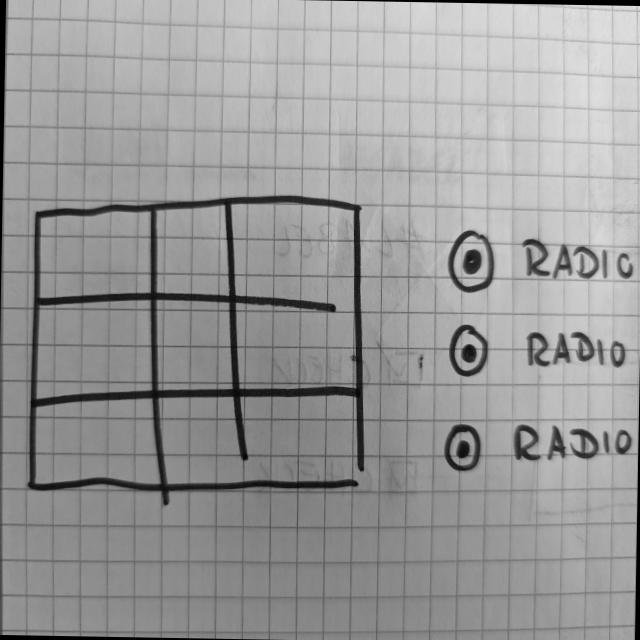 RADIO
RADIO
RADIO